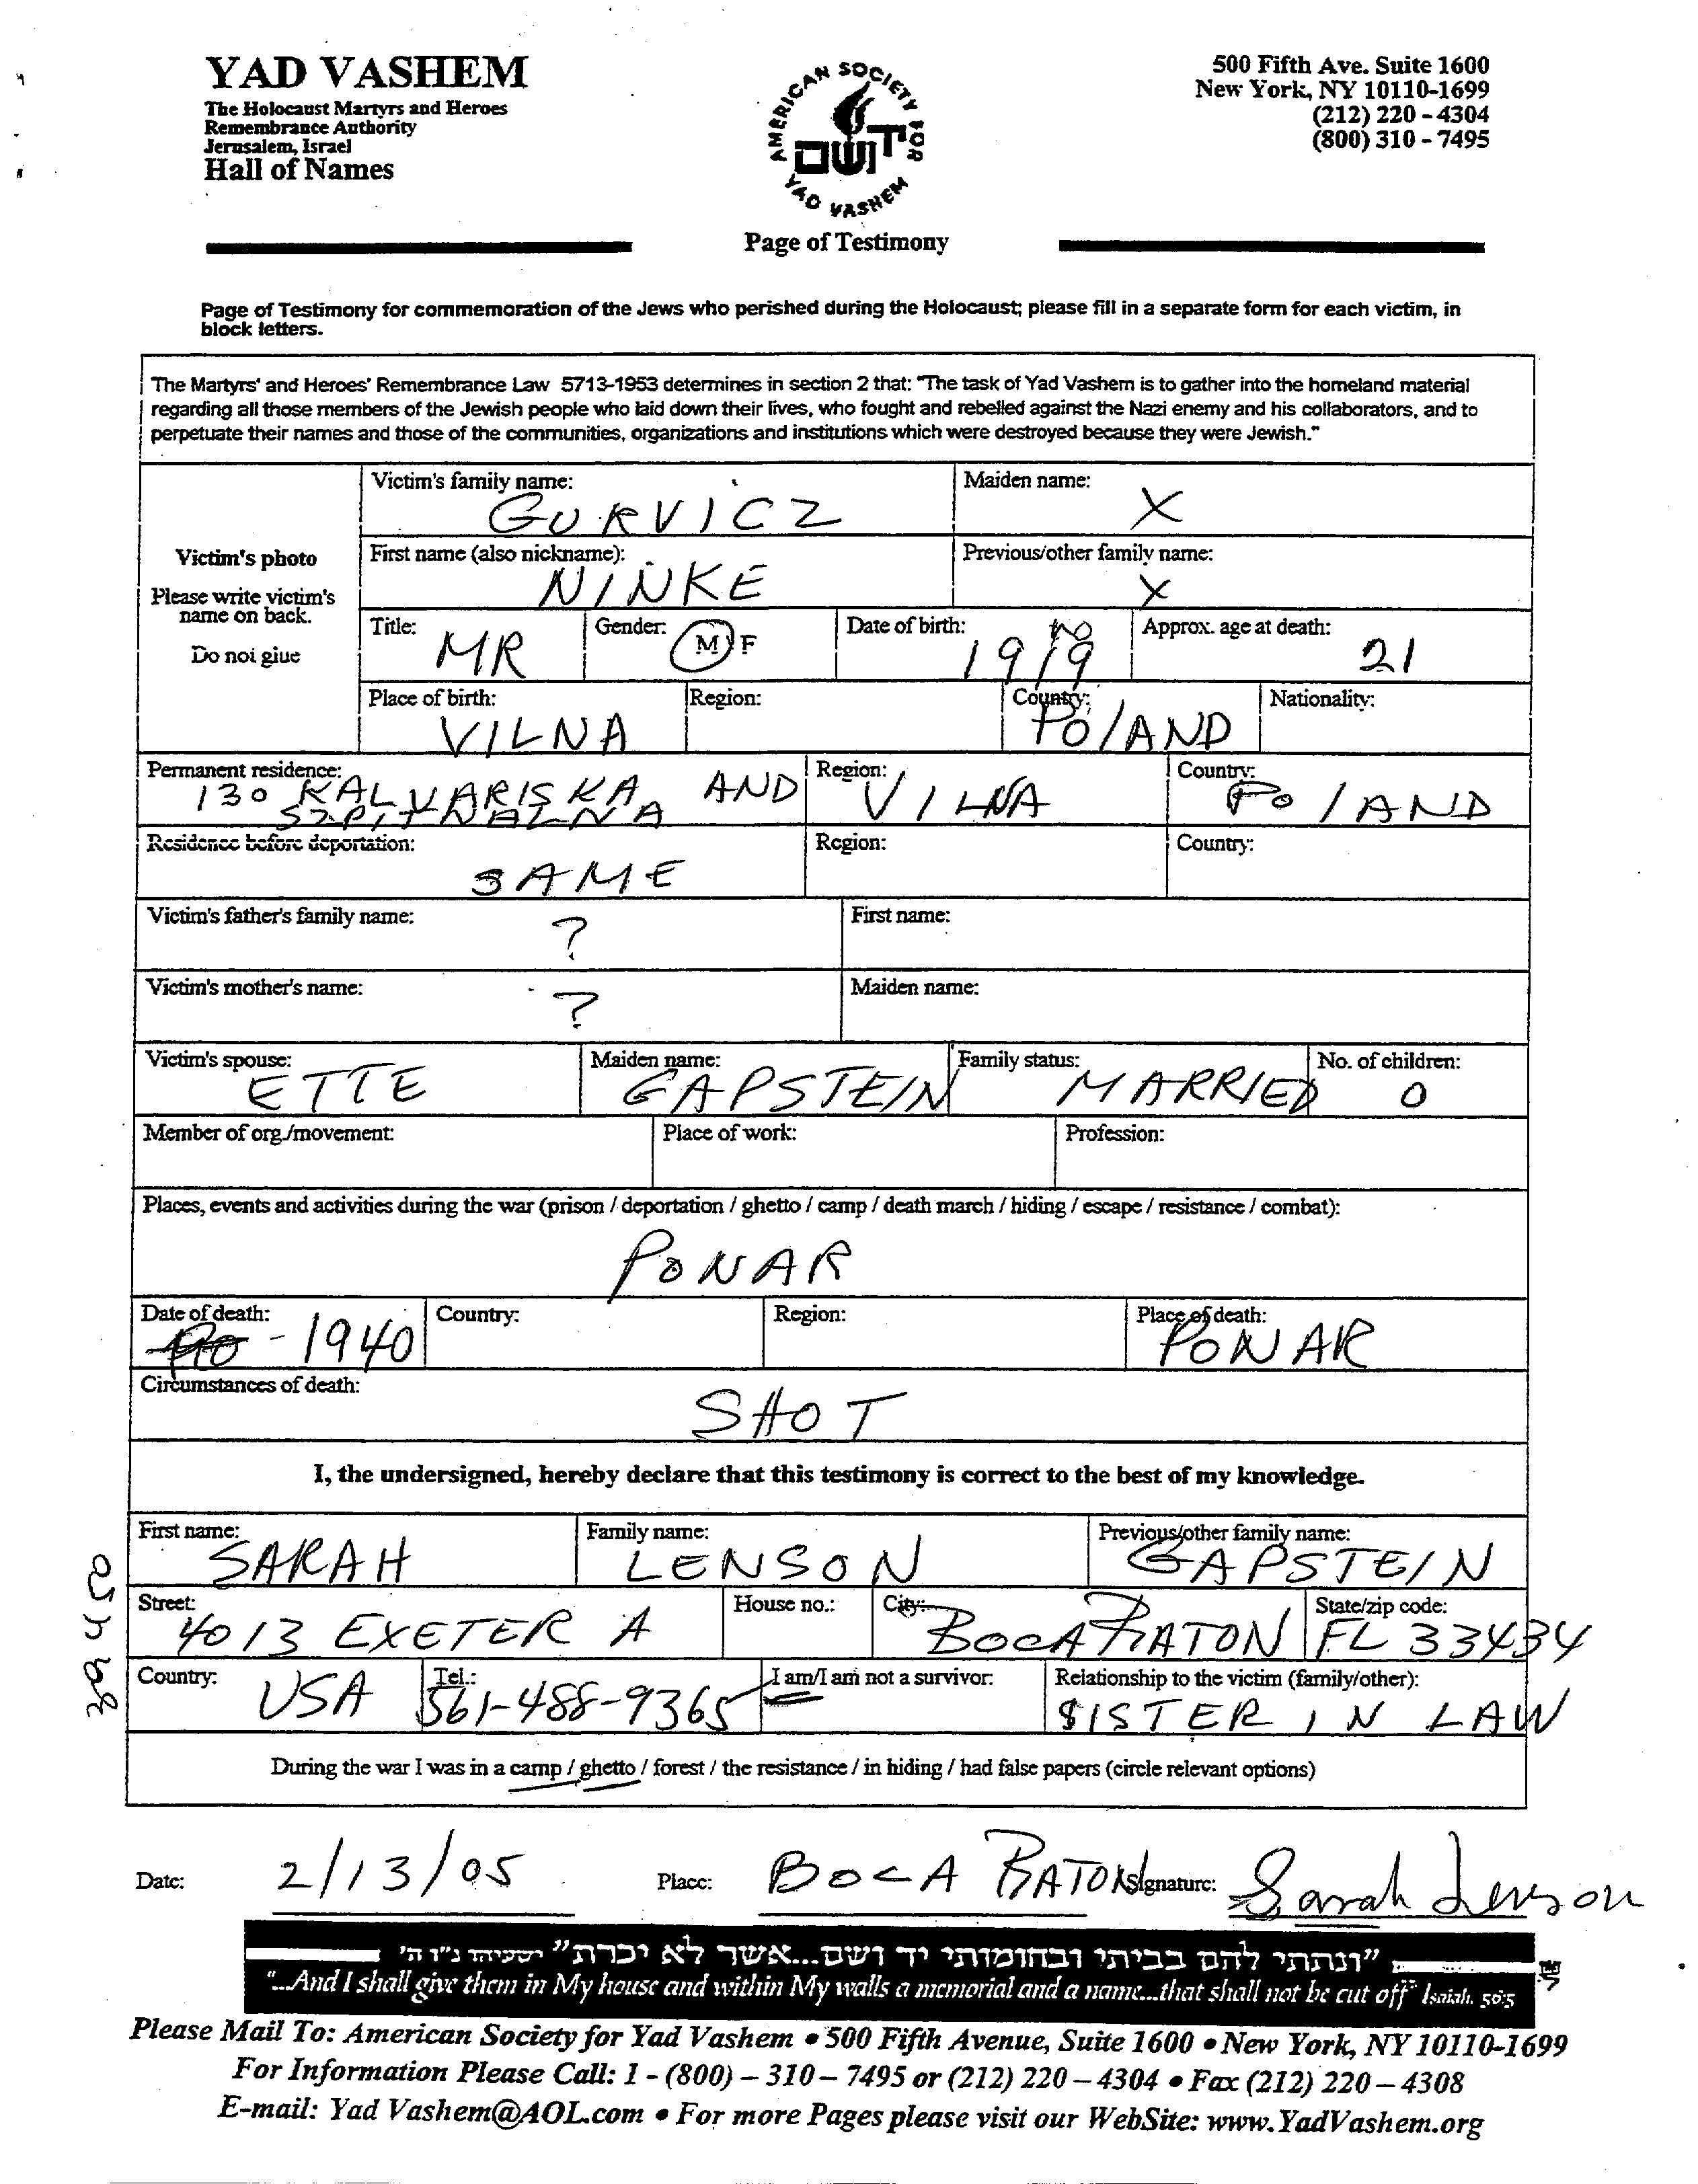 YAD VASHEM
The Holocaust Martyrs and Heroes
Remembrance Authority
Jerusalem, Israel
Hall of Names
AMERICAN SOCIETY FOR
YAD VASHEM
יד ושם
500 Fifth Ave. Suite 1600
New York, NY 10110-1699
(212) 220 - 4304
(800) 310 - 7495
Page of Testimony
Page of Testimony for commemoration of the Jews who perished during the Holocaust; please fill in a separate form for each victim, in
block letters.
The Martyrs' and Heroes' Remembrance Law 5713-1953 determines in section 2 that: "The task of Yad Vashem is to gather into the homeland material
regarding all those members of the Jewish people who laid down their lives, who fought and rebelled against the Nazi enemy and his collaborators, and to
perpetuate their names and those of the communities, organizations and institutions which were destroyed because they were Jewish."
Victim's photo
Please write victim's
name on back.
Do not glue
Victim's family name: GURVICZ
Maiden name: X
First name (also nickname): NINKE
Previous/other family name: X
Title: MR
Gender: M F
Date of birth: 1919
Approx. age at death: 21
Place of birth: VILNA
Region:
Country: POLAND
Nationality:
Permanent residence: 130 KALVARISKA AND
SZPITNALNA
Region: VILNA
Country: POLAND
Residence before deportation: SAME
Region:
Country:
Victim's father's family name: ?
First name:
Victim's mother's name: ?
Maiden name:
Victim's spouse: ETTE
Maiden name: GAPSTEIN
Family status: MARRIED
No. of children: 0
Member of org./movement:
Place of work:
Profession:
Places, events and activities during the war (prison / deportation / ghetto / camp / death march / hiding / escape / resistance / combat):
PONAR
Date of death: - 1940
Country:
Region:
Place of death: PONAR
Circumstances of death: SHOT
I, the undersigned, hereby declare that this testimony is correct to the best of my knowledge.
First name: SARAH
Family name: LENSON
Previous/other family name: GAPSTEIN
Street: 4013 EXETER A
House no.:
City: BOCA RATON
State/zip code: FL 33434
Country: USA
Tel.: 561-488-9365
I am/I am not a survivor:
Relationship to the victim (family/other): SISTER IN LAW
During the war I was in a camp / ghetto / forest / the resistance / in hiding / had false papers (circle relevant options)
Date: 2/13/05
Place: BOCA RATON
Signature: Sarah Lenson
"ונתתי להם בביתי ובחומותי יד ושם...אשר לא יכרת" ישעיהו נ"ו ה'
"...And I shall give them in My house and within My walls a memorial and a name...that shall not be cut off" Isaiah. 56:5
Please Mail To: American Society for Yad Vashem • 500 Fifth Avenue, Suite 1600 • New York, NY 10110-1699
For Information Please Call: 1 - (800) – 310 – 7495 or (212) 220 – 4304 • Fax (212) 220 – 4308
E-mail: Yad Vashem@AOL.com • For more Pages please visit our WebSite: www.YadVashem.org